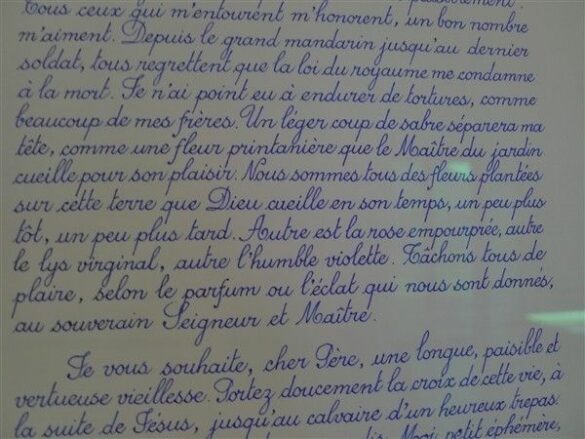 Tous ceux qui m'entourent m'honorent, un bon nombre
m'aiment. Depuis le grand mandarin jusqu'au dernier
soldat, tous regrettent que la loi du royaume me condamne
à la mort. Je n'ai point eu à endurer de tortures, comme
beaucoup de mes frères. Un léger coup de sabre séparera ma
tête, comme une fleur printanière que le Maître du jardin
cueille pour son plaisir. Nous sommes tous des fleurs plantées
sur cette terre que Dieu cueille en son temps, un peu plus
tôt, un peu plus tard. Autre est la rose empourprée, autre
le lys virginal, autre l'humble violette. Tâchons tous de
plaire, selon le parfum ou l'éclat qui nous sont donnés,
au souverain Seigneur et Maître.
Je vous souhaite, cher Père, une longue, paisible et
vertueuse vieillesse. Portez doucement la croix de cette vie, à
la suite de Jésus, jusqu'au calvaire d'un heureux trépas.
Moi, petit éphémère,